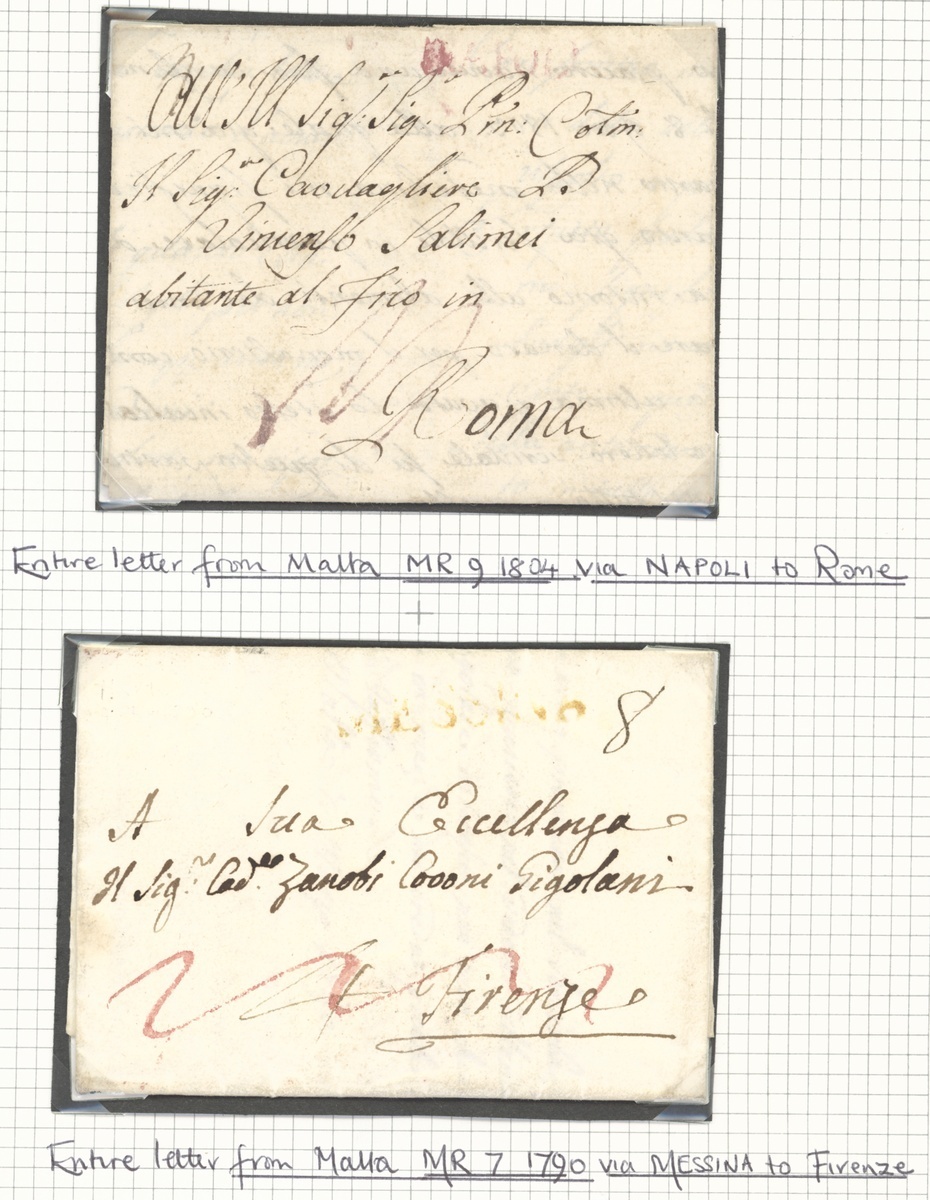 All'Ill Sig: Sig: Prn: Colm:
Il Sig.r Caovagliere D.
Vincenso Salimei
abitante al Fico in
Roma
Entire letter from Malta MR 9 1804 via NAPOLI to Rome
8
A Sua Eccellenza
Il Sig.re Cav.re Zanobi Covoni Gigolani
Firenze
Entire letter from Malta MR 7 1790 via MESSINA to Firenze